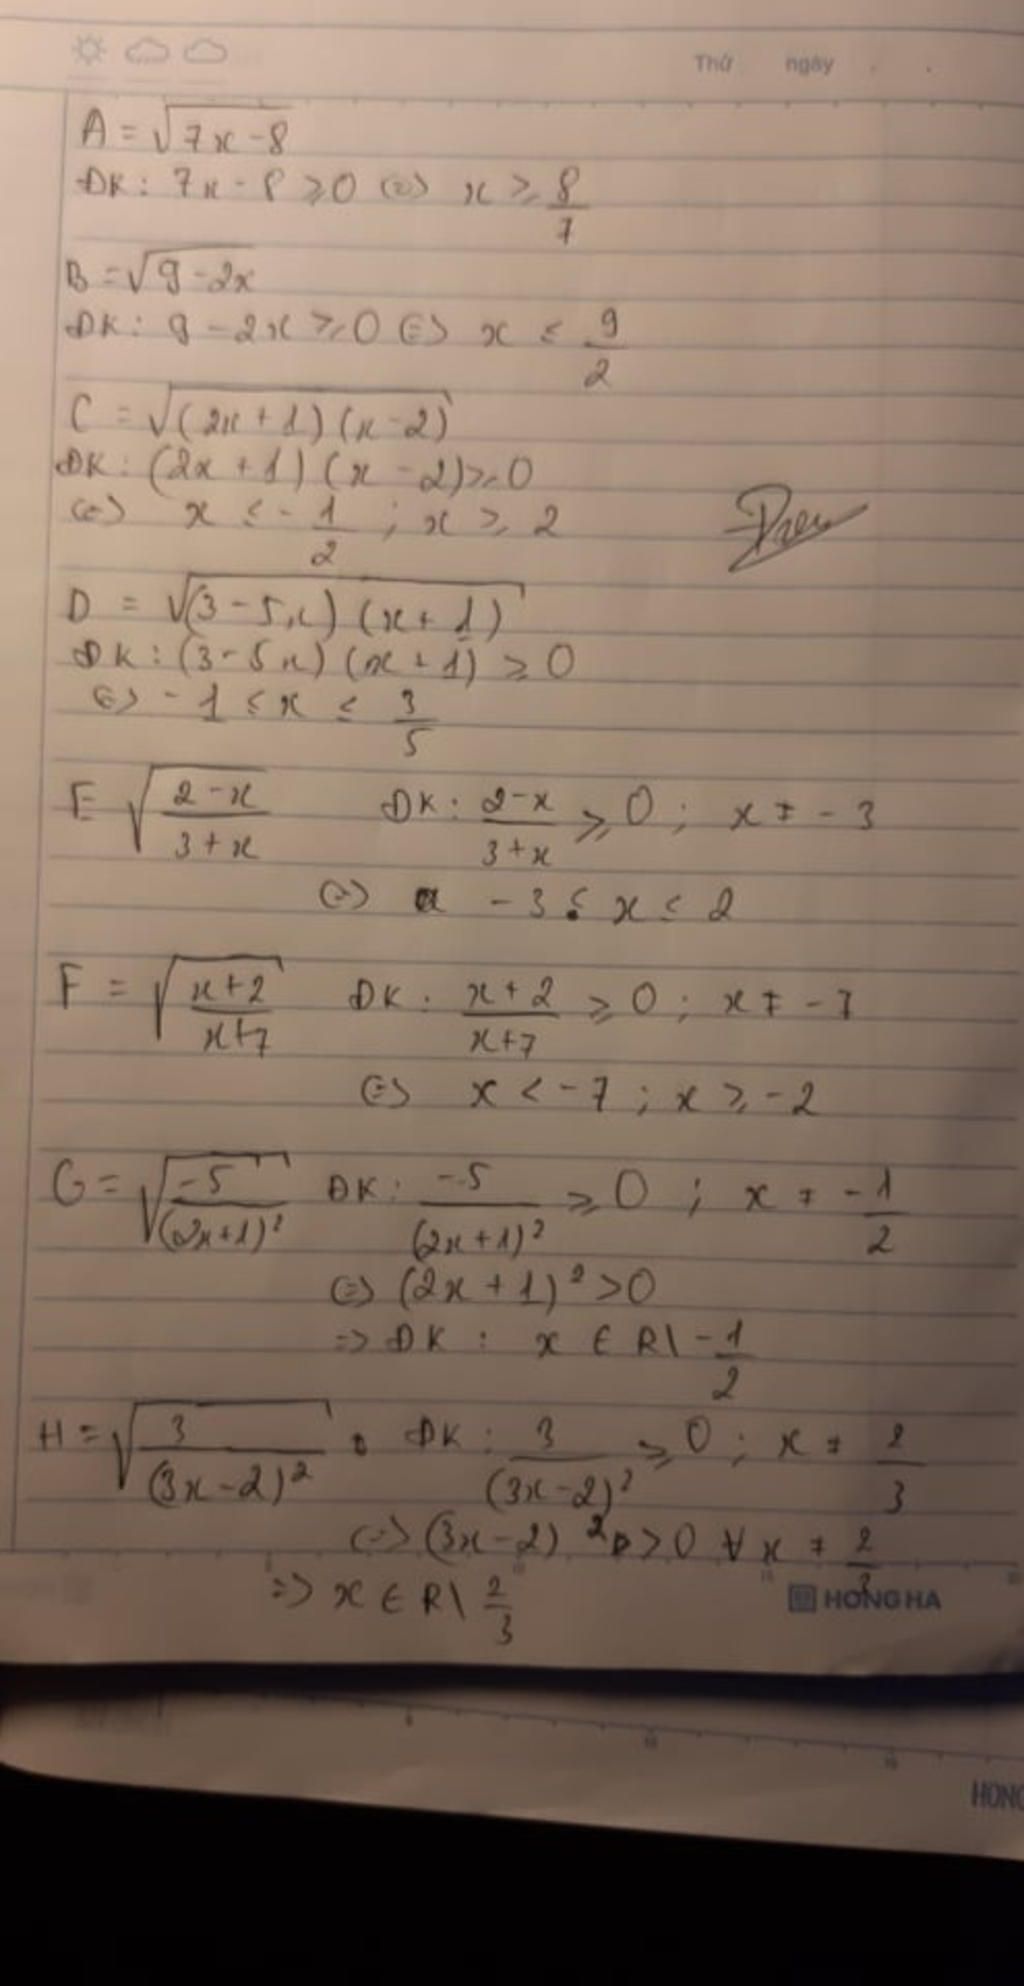 Thứ ngày . .
A = √(7x - 8)
ĐK: 7x - 8 ≥ 0 (=) x ≥ 8/7
B = √(9 - 2x)
ĐK: 9 - 2x ≥ 0 (=) x ≤ 9/2
C = √((2x + 1)(x - 2))
ĐK: (2x + 1)(x - 2) ≥ 0
(=) x ≤ -1/2 ; x ≥ 2
D = √((3 - 5x)(x + 1))
ĐK: (3 - 5x)(x + 1) ≥ 0
(=) -1 ≤ x ≤ 3/5
E √((2 - x)/(3 + x)) ĐK: (2 - x)/(3 + x) ≥ 0 ; x ≠ -3
(=) -3 ≤ x ≤ 2
F = √((x + 2)/(x + 7)) ĐK: (x + 2)/(x + 7) ≥ 0 ; x ≠ -7
(=) x < -7 ; x ≥ -2
G = √(-5/(2x + 1)²) ĐK: -5/(2x + 1)² ≥ 0 ; x ≠ -1/2
(=) (2x + 1)² > 0
=> ĐK : x ∈ R\ -1/2
H = √(3/(3x - 2)²) ĐK: 3/(3x - 2)² ≥ 0 ; x ≠ 2/3
(=) (3x - 2)² > 0 ∀ x ≠ 2/3
=> x ∈ R\ 2/3
HONG HA
HONG